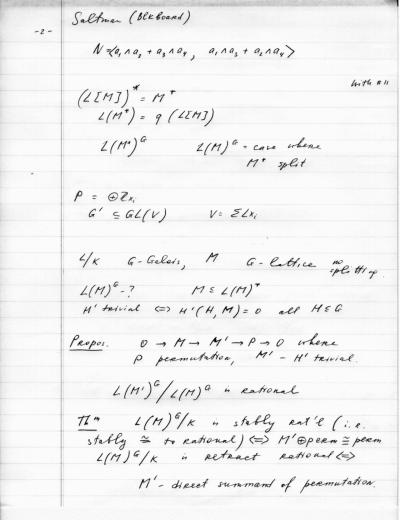 Saltman (Blkboard)
-2-
N=<a₁∧a₂ + a₃∧a₄, a₁∧a₃ + a₂∧a₄>
with #11
(L[M])* = M*
L(M*) = q(L[M])
L(M*)ᴳ L(M)ᴳ - case where
M* split
P = ⊕ℤxᵢ
G' ⊆ GL(V) V = ΣLxᵢ
L/K G-Galois, M G-lattice no
splitting.
L(M)ᴳ - ? M ⊆ L(M)*
H' trivial <=> H'(H, M) = 0 all H ⊆ G
Propos. 0 → M → M' → P → 0 where
P permutation, M' - H' trivial.
L(M')ᴳ/L(M)ᴳ is rational
Thm L(M)ᴳ/K is stably rat'l (i.e.
stably ≅ to rational) <=> M' ⊕ perm ≅ perm
L(M)ᴳ/K is retract rational <=>
M' - direct summand of permutation.